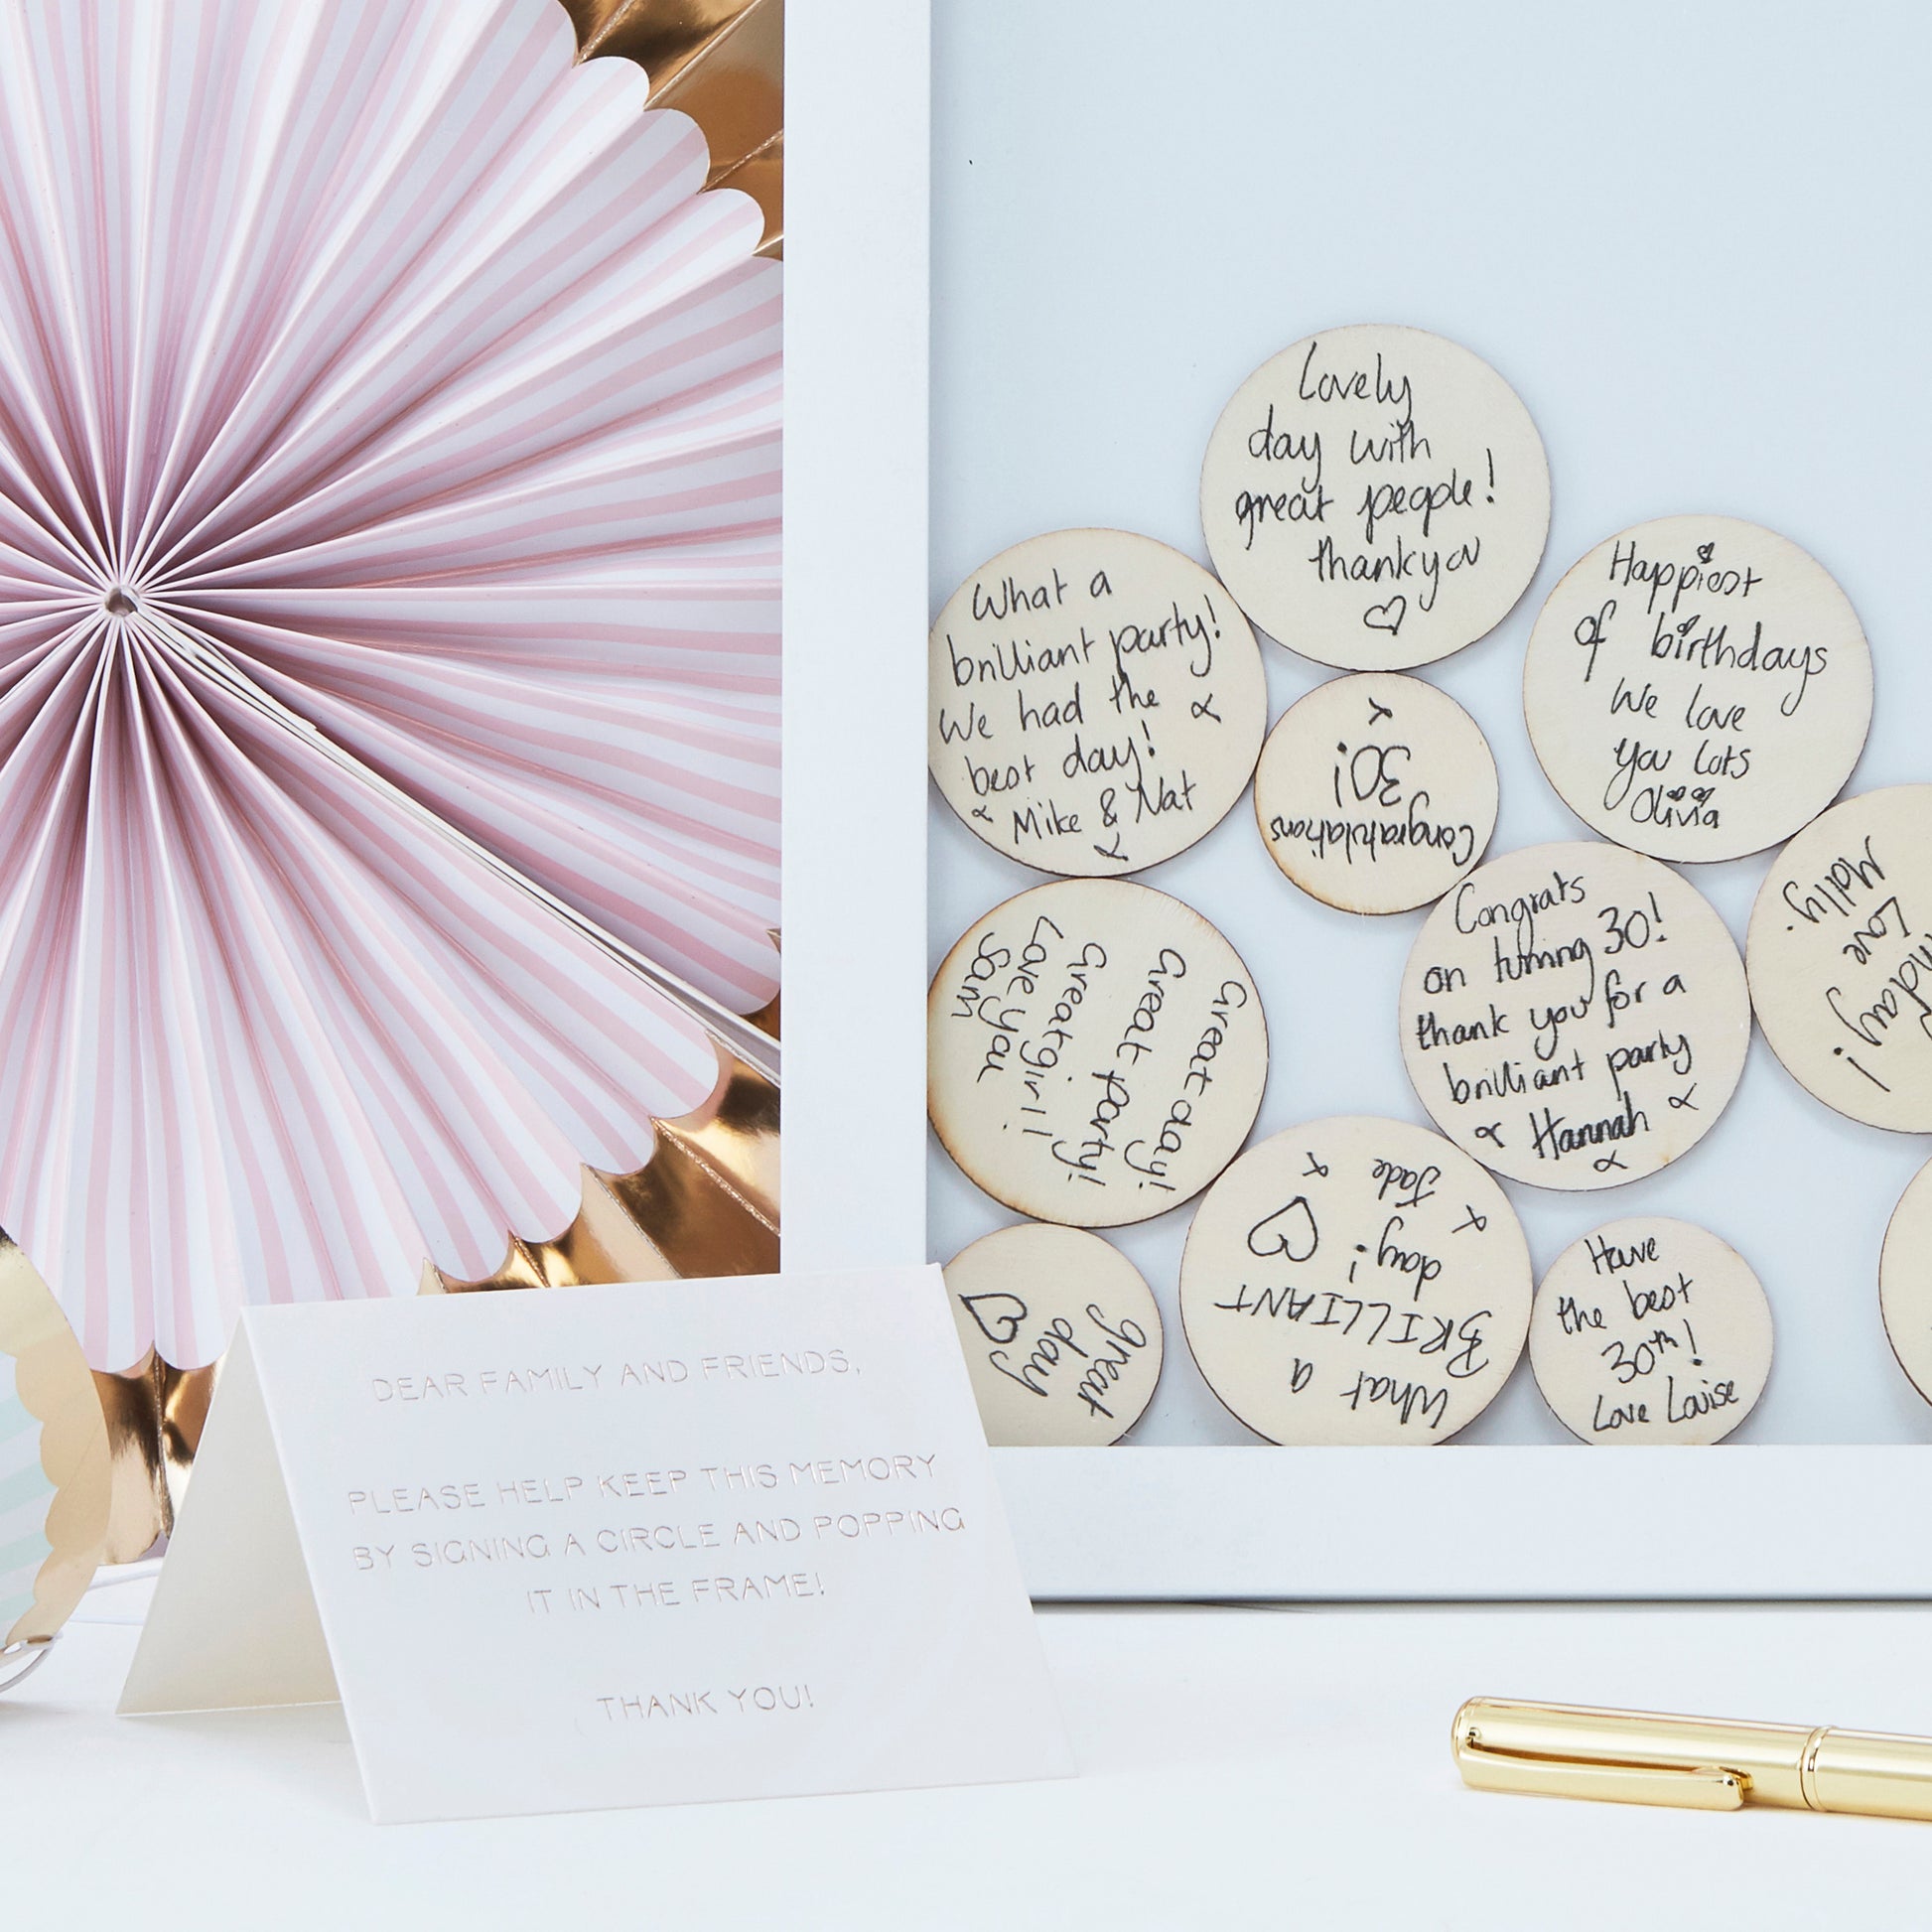 Lovely
day with
great people!
thank you
What a
brilliant party!
We had the
best day!
x Mike & Nat
x
x
Happiest
of birthdays
We love
you lots
Olivia
Congratulations
30!
x
Congrats
on turning 30!
thank you for a
brilliant party
x Hannah x
x
day!
Love
Molly.
Great day!
Great party!
Great girl!
Love you
Sam
What a
BRILLIANT
day!
x Jade x
great
day
Have
the best
30th!
Love Louise
DEAR FAMILY AND FRIENDS,
PLEASE HELP KEEP THIS MEMORY
BY SIGNING A CIRCLE AND POPPING
IT IN THE FRAME!
THANK YOU!